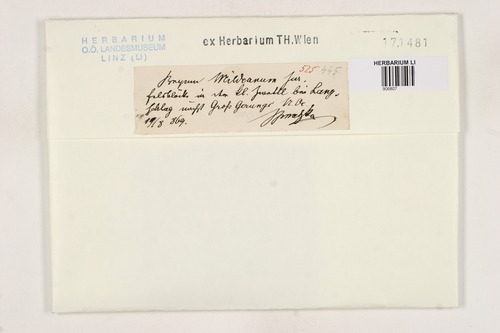 HERBARIUM
O.Ö. LANDESMUSEUM
LINZ (LI)
ex Herbarium TH.Wien
171481
HERBARIUM LI
525 445
Bryum Mildeanum Jur.
Felsblöcke in der Kl. Zwettl bei Lang-
schlag nächst Groß Gerungs
19/8 869.